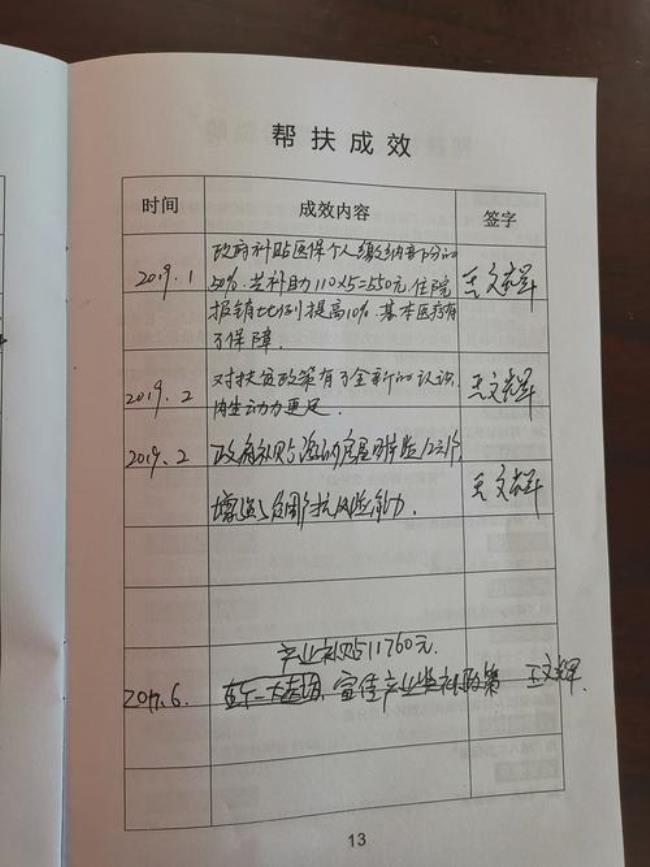 帮扶成效
时间 成效内容 签字
政府补贴医保个人缴纳部分的
2019.1 50%.共补助110×5=550元.住院 王文辉
报销比例提高10%.基本医疗有
了保障.
对扶贫政策有了全新的认识,
2019.2 内生动力更足. 王文辉
2019.2 政府补贴缴纳房屋财险12元/户,
增强了贫困户抗风险能力. 王文辉
产业补贴11760元.
2019.6. 宣传产业奖补政策 王文辉
13